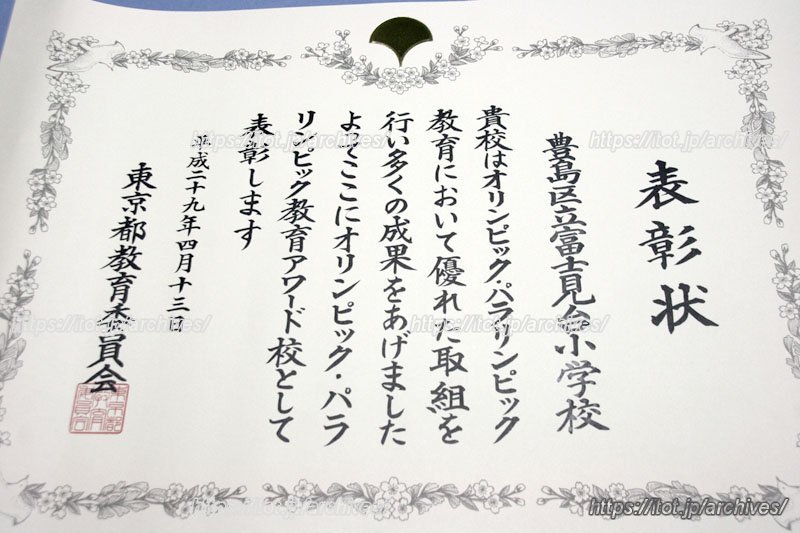 表彰状
豊島区立富士見台小学校
貴校はオリンピック・パラリンピック
教育において優れた取組を
行い多くの成果をあげました
よってここにオリンピック・パラ
リンピック教育アワード校として
表彰します
平成二十九年四月十三日
東京都教育委員会
https://itot.jp/archives/
https://itot.jp/archives/
https://itot.jp/archives/
https://itot.jp/archives/
https://itot.jp/archives/
https://itot.jp/archives/
https://itot.jp/archives/
https://itot.jp/archives/
https://itot.jp/archives/